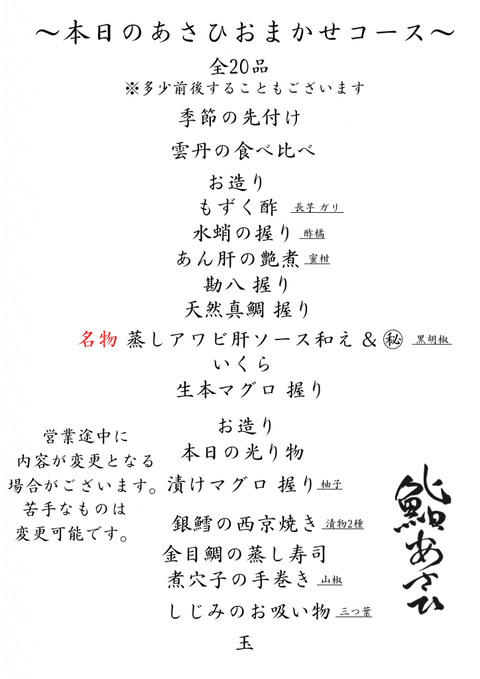 ～本日のあさひおまかせコース～
全20品
※多少前後することもございます
季節の先付け
雲丹の食べ比べ
お造り
もずく酢 長芋 ガリ
水蛸の握り 酢橘
あん肝の艶煮 蜜柑
勘八 握り
天然真鯛 握り
名物 蒸しアワビ肝ソース和え & ㊙ 黒胡椒
いくら
生本マグロ 握り
お造り
本日の光り物
漬けマグロ 握り 柚子
銀鱈の西京焼き 漬物2種
金目鯛の蒸し寿司
煮穴子の手巻き 山椒
しじみのお吸い物 三つ葉
玉
営業途中に
内容が変更となる
場合がございます。
苦手なものは
変更可能です。
鮨あさひ